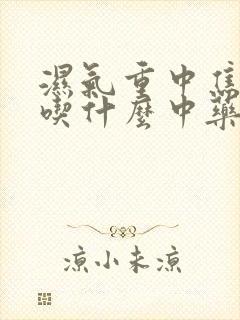 濕氣重中焦
喫什麼中藥
凉小未凉